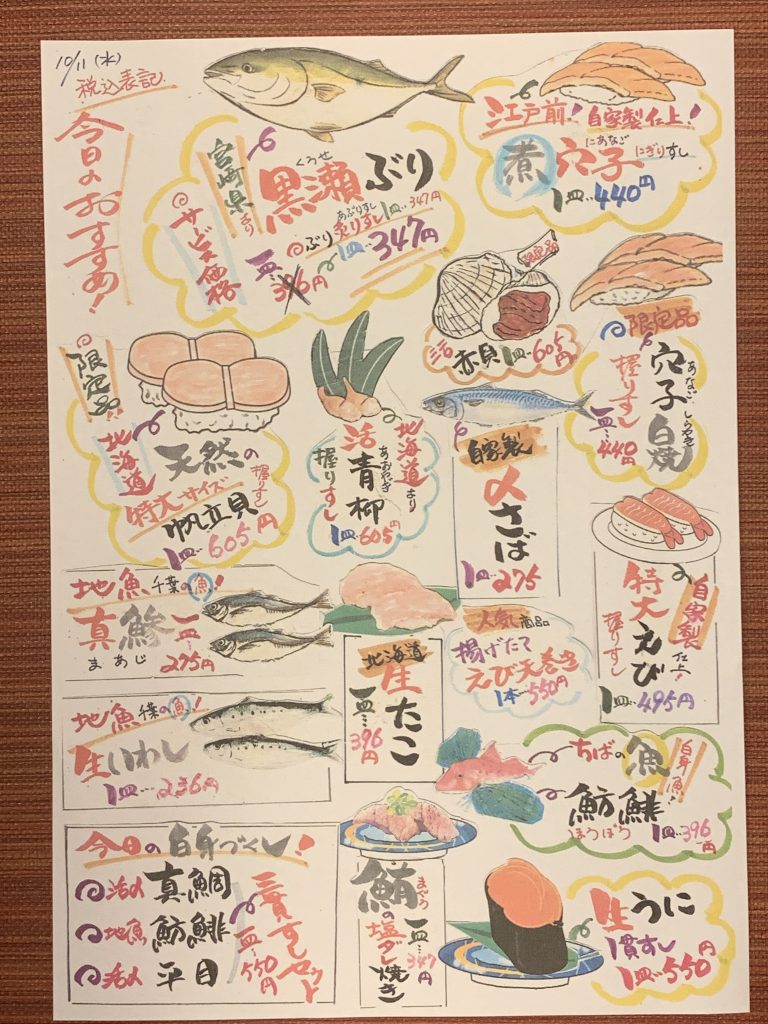 10/11(水)
税込表記
今日のおすすめ!
宮崎県より
くろせ
黒瀬ぶり
サービス価格
あぶりすし
ぶり炙りすし1皿‥347円
一皿‥396円
1皿‥347円
江戸前!自家製仕上!
にあなご
煮穴子にぎりすし
1皿‥440円
限定品
活赤貝1皿‥605円
限定品
穴子白焼
あなごしらやき
握りすし
一皿‥440円
限定品!!
北海道
天然の
特大サイズ
握りすし
帆立貝
1皿‥605円
北海道より
活青柳
あおやぎ
握りすし
1皿‥605円
自家製
〆さば
1皿‥275
自家製仕上!
特大えび
握りすし
1皿‥495円
地魚千葉の魚!
真鯵
まあじ
一皿‥275円
北海道
生たこ
一皿‥396円
人気商品
揚げたて
えび天巻き
1本‥550円
地魚千葉の魚!
生いわし
1皿‥236円
ちばの魚
白身魚!
魴鮄
ほうぼう
1皿‥396円
今日の白身づくし!
活〆真鯛
地魚魴鮄
活〆平目
三貫すしセット
一皿‥550円
鮪の塩ダレ焼き
まぐろ
一皿‥347円
生うに
一貫すし
1皿‥550円